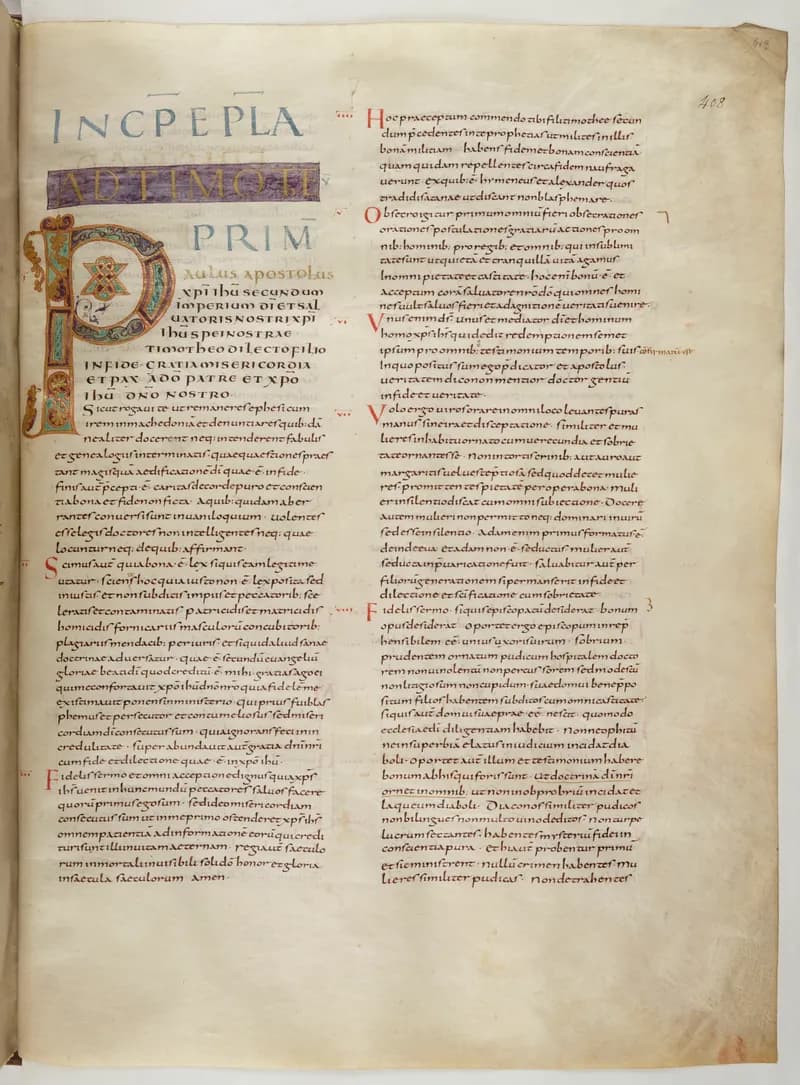 408
INCP EPLA
AD TIMOTH
PRIM̄
PAULUS APOSTOLUS
XPI IHU SECUNDUM
IMPERIUM DI ET SAL
UATORIS NOSTRI XPI
IHU SPEI NOSTRAE
TIMOTHEO DILECTO FILIO
IN FIDE· GRATIA MISERICORDIA
ET PAX A DO PATRE ET XPO
IHU DNO NOSTRO·
Sicut rogaui te ut remaneres ephesi cum
irem in machedonia et denuntiares quib: dā
ne aliter docerent neq: intenderent fabulis
et genealogiis interminatis· quae quaestiones praes
tant magis quā aedificationē dī quae ē in fide·
finis aut̄ p̄cepti ē caritas de corde puro et conscien
tia bona et fide non ficta· A quib: quidam aber
rantes conuersi sunt in uaniloquium· uolentes
esse legis doctores non intellegentes neq: quae
locuntur neq: de quib: affirmant·
Scimus aut̄ quia bona ē lex si quis ea legitime
utatur· sciens hoc quia iusto non ē lex posita sed
iniustis et non subditis impiis et peccatorib: sce
leratis et contaminatis patricidis et matricidis
homicidis fornicariis masculorū concubitorib:
plagiariis mendacib: periuris et si quid aliud sanae
doctrinae aduersatur· quae ē secundū euangeliū
gloriae beati dī quod creditū ē mihi· gratias ago ei
qui me confortauit xpo ihu dno nro quia fidelē me
existimauit ponens in ministerio· qui prius fui blas
phemus et persecutor et contumeliosus sed miseri
cordiam di consecutus sum· quia ignorans feci in in
credulitate· superabundauit aut̄ gratia dni nri
cum fide et dilectione quae ē in xpo ihu·
Fidelis sermo et omni acceptione dignus quia xps
ihs uenit in hunc mundū peccatores saluos facere
quorū primus ego sum· sed ideo misericordiam
consecutus sum ut in me primo ostenderet xps ihs
omnem patientia ad informationē eorū qui credi
turi sunt illi in uitam aeternam· regi aut̄ saeculo
rum inmortali inuisibili soli dō honor et gloria
in saecula saeculorum amen·
Hoc praeceptum commendo tibi fili timothee secun
dum p̄cedentes in te prophetias ut milites in illis
bonā militiam· habens fidem et bonam conscientiā
quam quidam repellentes circa fidem naufraga
uerunt· ex quib: ē hymeneus et alexander quos
tradidi satanae ut discant non blasphemare·
Obsecro igitur primum omniū fieri obsecrationes
orationes postulationes gratiarū actiones pro om
nib: hominib; pro regib; et omnib; qui in sublimi
tate sunt ut quieta et tranquillā uitā agamus
In omni pietate et castitate· hoc enī bonū ē et
acceptum corā saluatore nro dō qui omnes homi
nes uult saluos fieri et ad agnitionē ueritatis uenire·
Unus enim ds· unus et mediator dī et hominum
homo xps ihs qui dedit redemptionem semet
ipsum pro omnib; testimonium temporib; suis confirmatū est
In quo positus sum ego p̄dicator et apostolus·
ueritatem dico non mentior doctor gentiū
in fide et ueritate·
Uolo ergo uiros orare in omni loco leuantes puras
manus sine ira et disceptatione· similiter et mu
lieres in habitu ornato cum uerecundia et sobrie
tate ornantes se· non in tortis crinib; aut auro aut
margaritis uel ueste p̄tiosa sed quod decet mulie
res· promittentes pietatē per opera bona· muli
er in silentio discat cum omni subiectione· Docere
autem mulieri non permitto neq; dominari in uirū
sed esse in silentio· Adam enim primus formatus ē
deinde eua· et adam non ē seductus mulier aut̄
seducta in p̄uaricatione fuit· saluabitur aut̄ per
filiorū generationem si permanserit in fide et
dilectione et sc̄ificatione cum sobrietate·
Fidelis sermo· si quis episcopatū desiderat bonum
opus desiderat· oportet ergo episcopum inrep̄
hensibilem eē· unius uxoris uirum· sobrium·
prudentem ornatum pudicum hospitalem docto
rem non uinolentū non percussorem sed modestū
non litigiosum non cupidum· suae domui bene p̄po
situm· filios habentem subditos cum omni castitate·
si quis aut̄ domui suae prae eē nescit· quomodo
ecclesiae dī diligentiam habebit· Non neophitū
ne in superbia elatus in iudicium incidat dia
boli· oportet aut̄ illum et testimonium habere
bonum ab his qui foris sunt· ut doctrinā dni nri
ornet in omnib; ut non in obprobriū incidat et
laqueum diaboli· Diaconos similiter pudicos
non bilingues non multo uino deditos· non turpe
lucrum sectantes· habentes mysteriū fidei in
conscientia pura· et hi aut̄ probentur primū
et sic ministrent· nullū crimen habentes· mu
lieres similiter pudicas· non detrahentes